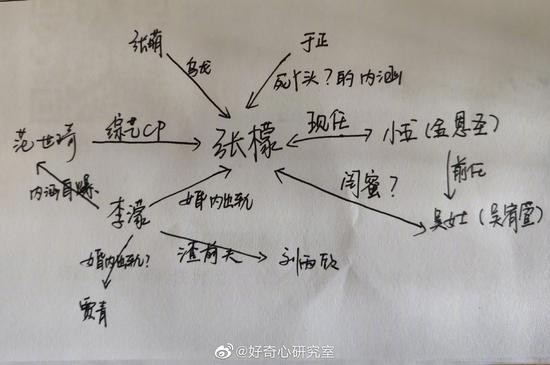 张萌
于正
乌龙
死丫头？的内涵
范世琦
综艺CP
张檬
现任
小五（孟恩圣）
内涵自爆
李濛
婚内出轨
闺蜜？
前任
吴女士（吴宥萱）
婚内出轨？
渣前夫
刘雨欣
贾青
@好奇心研究室